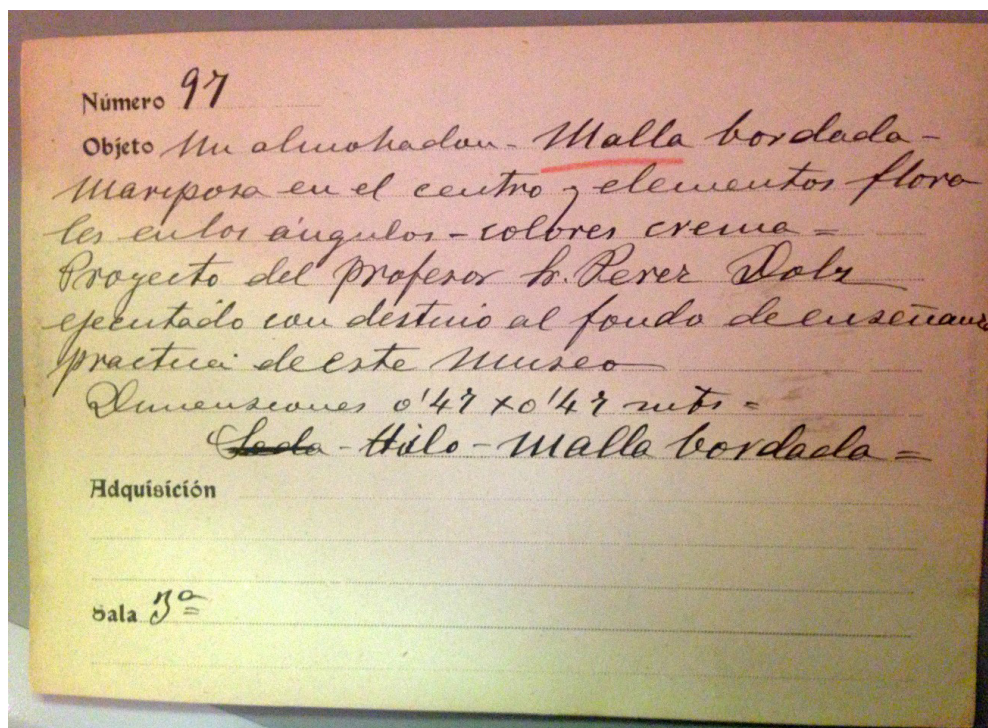 Número 97
Objeto Un almohadon - Malla bordada -
Mariposa en el centro y elementos flora
les en los ángulos - colores crema =
Proyecto del profesor Sr. Perez Dolz
ejecutado con destino al fondo de enseñanza
practica de este Museo
Dimensiones 0'47 x 0'47 mts =
Seda - Hilo - Malla bordada =
Adquisición
Sala 3ª